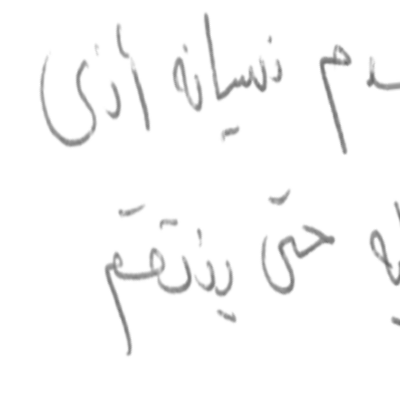 نسيانه أذى
حتى ينتقم